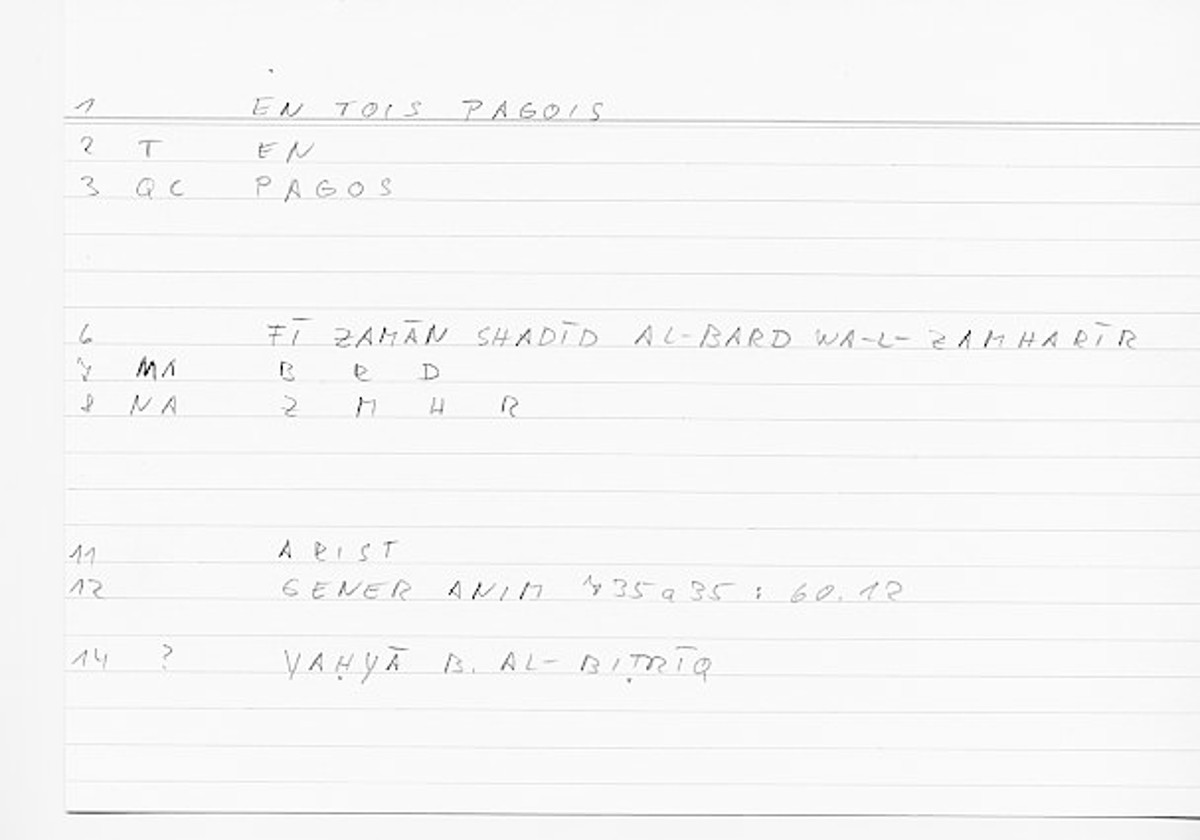 1 EN TOIS PAGOIS
2 T EN
3 QC PAGOS
6 FĪ ZAMĀN SHADĪD AL-BARD WA-L-ZAMHARĪR
7 MA B R D
8 NA Z M H R
11 ARIST
12 GENER ANIM 735a35 : 60.12
14 ? YAḤYĀ B. AL-BIṬRĪQ